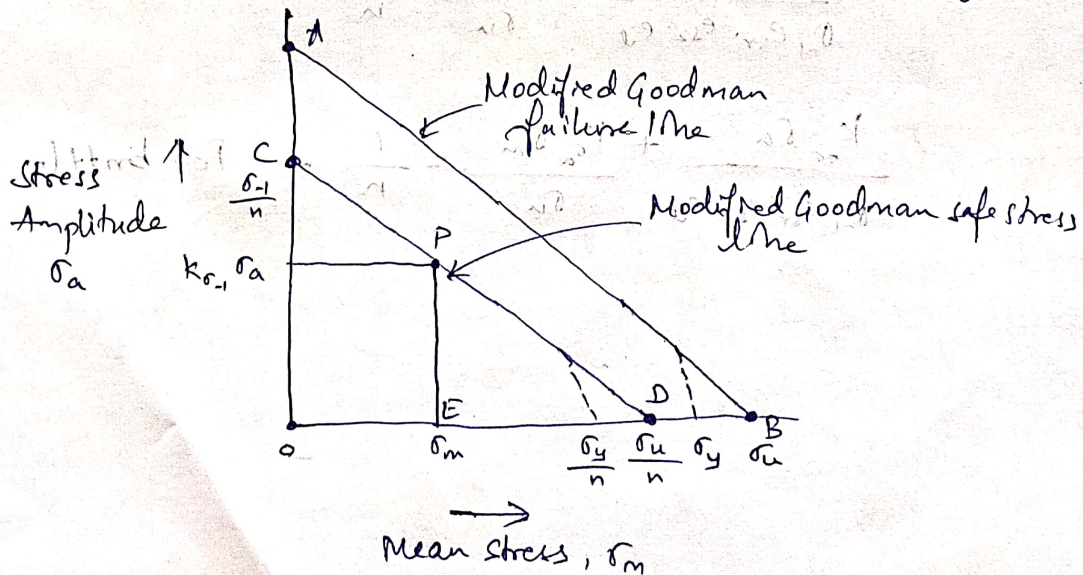 A
Modified Goodman
failure line
C
σ-1/n
Stress ↑
Amplitude
σa
Modified Goodman safe stress
line
P
kσ-1 σa
E
D
B
o
σm
σy/n
σu/n
σy
σu
→
Mean stress, σm